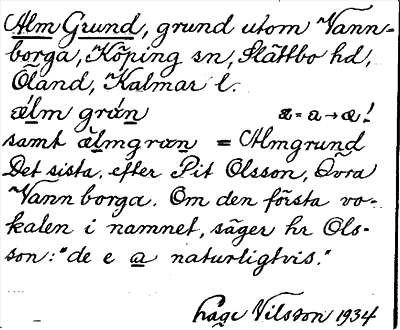 Alm Grund, grund utom Vann-
borga, Köping sn, Slättbo hd,
Öland, Kalmar l.
ælm grán æ = a → æ!
samt ælmgræn = Almgrund
Det sista, efter Pit Olsson, Övra
Vannborga. Om den första vo-
kalen i namnet, säger hr Ols-
son: "de e a naturligtvis."
Håge Nilsson 1934